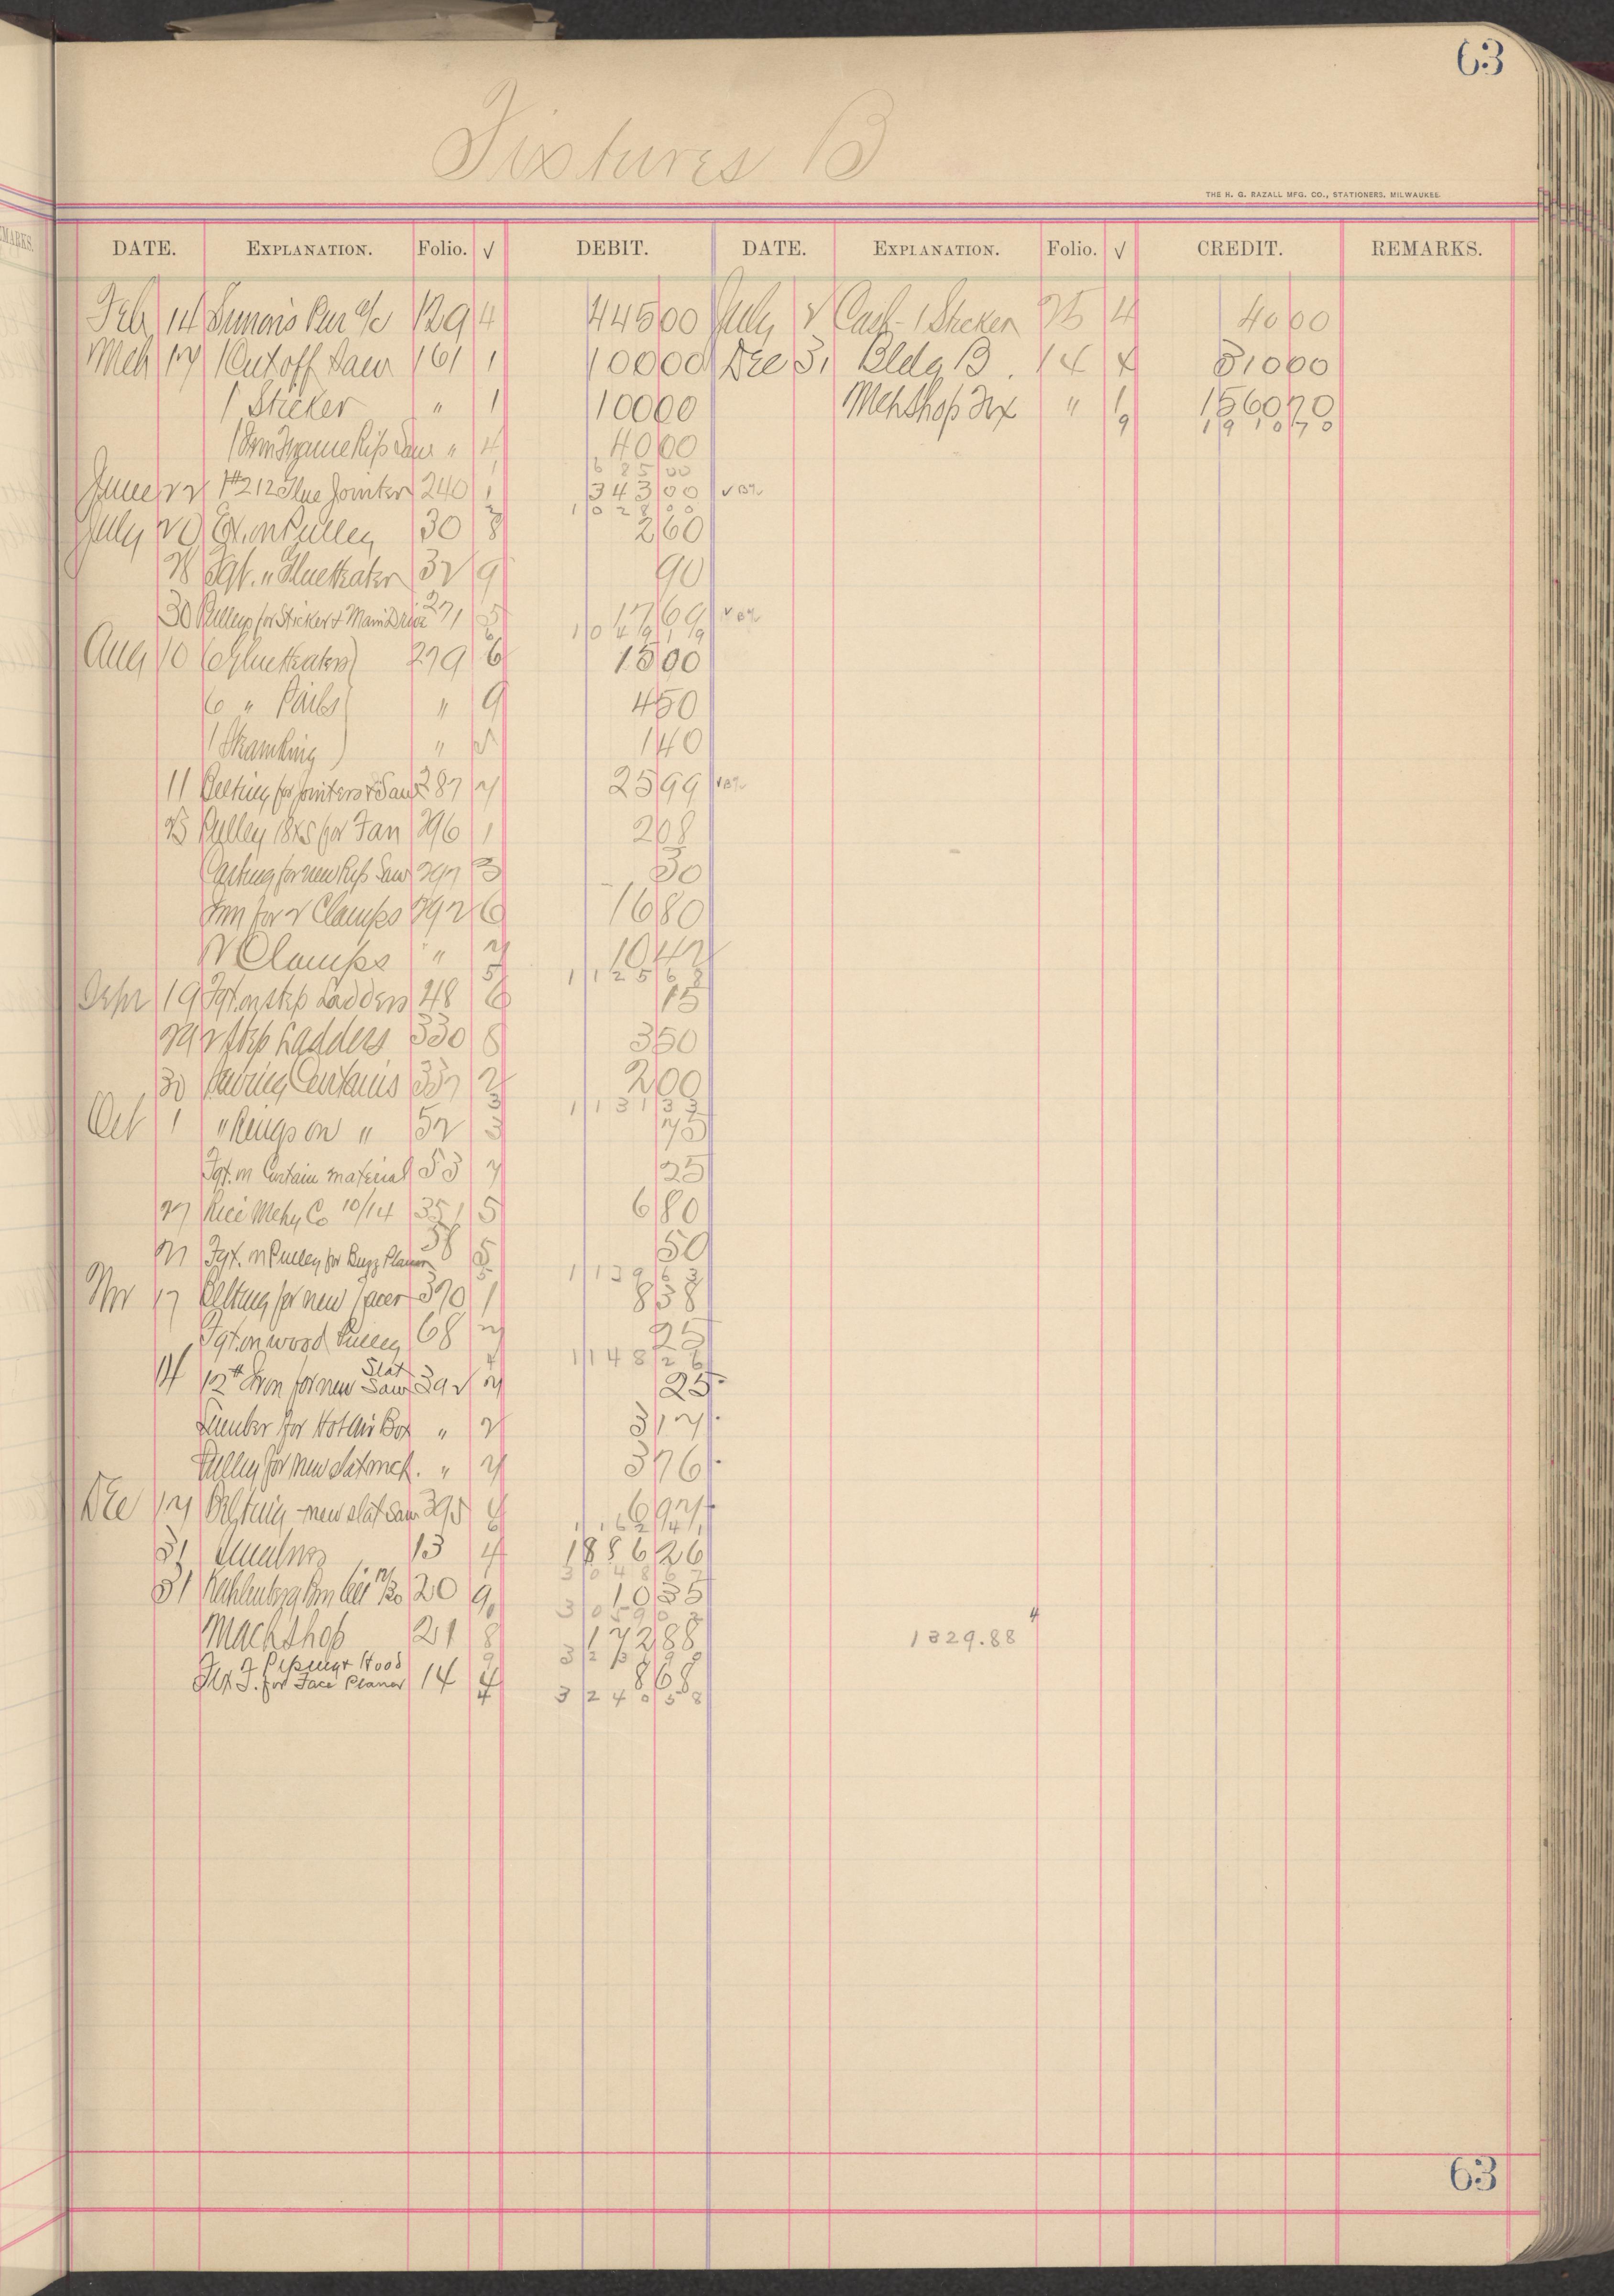 63
Fixtures B
THE H. G. RAZALL MFG. CO., STATIONERS, MILWAUKEE.
DATE. EXPLANATION. Folio. √ DEBIT. DATE. EXPLANATION. Folio. √ CREDIT. REMARKS.
Feb 14 Simons Pur a/c 129 4 445 00 July 2 Cash - 1 Sticker 25 4 40 00
Mch 17 1 Cut off Saw 161 1 100 00 Dec 31 Bldg B. 14 310 00
1 Sticker " 1 100 00 Mch Shop Fix " 1 1560 70
9 1910 70
1 Iron Frame Rip Saw " 4 40 00
1 685 00
June 22 1 #212 Glue Jointer 240 1 343 00 √ B%
2 1028 00
July 20 Ex. on Pulley 30 8 2 60
28 Fgt. " Glue Heater 32 9 90
30 Pulleys for Sticker & Main Drive 271 5 17 69 √ B%
6 1049 19
Aug 10 6 Glue Heaters 279 6 15 00
6 " Pails " 9 4 50
1 " 1 40
11 Belting for Jointers & Saw 287 25 99 √ B%
25 Pulley 18x5 for Fan 296 1 2 08
Casting for new Rip Saw 297 3 30
Iron for 2 Clamps 292 6 16 80
2 Clamps " 10 42
5 1125 68
Sept 19 Fgt. on Step Ladders 48 6 15
29 2 Step Ladders 330 8 3 50
30 Sewing Curtains 337 2 2 00
3 1131 33
Oct 1 " Rings on " 52 3 75
Fgt. on Curtain material 53 7 25
27 Rice Mchy Co 10/14 351 5 6 80
21 Fgt. on Pulley for Buzz Planer 58 5 50
5 1139 63
Nov 17 Belting for new Facer 370 1 8 38
Fgt. on wood Pulley 68 25
4 1148 26
14 12# Iron for new Slat Saw 392 25
Lumber for Hot Air Box " 3 17
Pulley for new slat mch. " 3 76
Dec 17 Belting - new slat saw 395 6 97
6 1162 41
31 13 4 1886 26
3048 67
31 Kahlenberg Bros 20 9 10 35
3059 02
Mach Shop 21 8 172 88 1329.88 4
9 3231 90
Fix J. Piping & Hood for Face Planer 14 4 8 68
4 3240 58
63